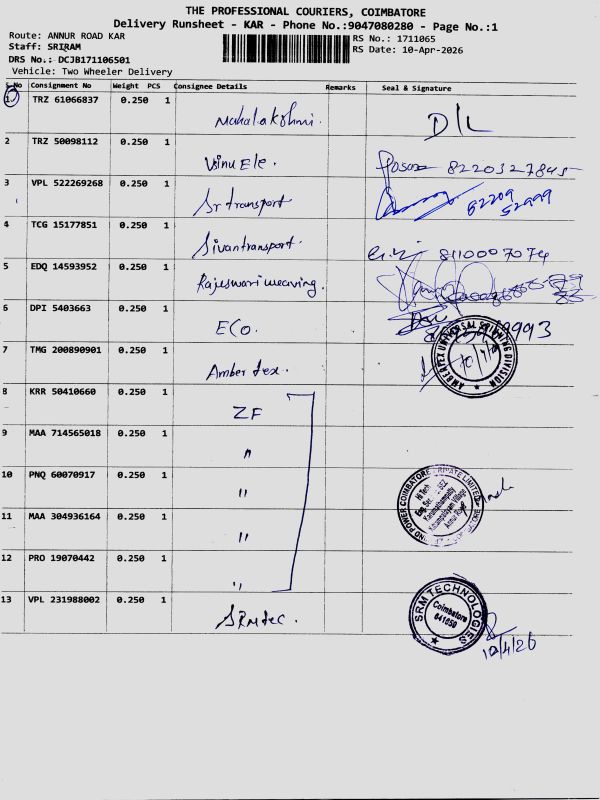 THE PROFESSIONAL COURIERS, COIMBATORE
Delivery Runsheet - KAR - Phone No.:9047080280 - Page No.:1
Route: ANNUR ROAD KAR
RS No.: 1711065
Staff: SRIRAM
RS Date: 10-Apr-2026
DRS No.: DCJB171106501
Vehicle: Two Wheeler Delivery
S.No Consignment No Weight PCS Consignee Details Remarks Seal & Signature
1 TRZ 61066837 0.250 1 Mahalakshmi. D/L
2 TRZ 50098112 0.250 1 Vsinu Ele. 8220327845
3 VPL 522269268 0.250 1 Sr transport 62209 52999
4 TCG 15177851 0.250 1 Sivantransport. 8110007074
5 EDQ 14593952 0.250 1 Rajeswari weaving.
6 DPI 5403663 0.250 1 ECO.
7 TMG 200890901 0.250 1 Amber tex. AMBERTEX UNIVERSAL SPINNING DIVISION
8 KRR 50410660 0.250 1 ZF
9 MAA 714565018 0.250 1 "
10 PNQ 60070917 0.250 1 "
11 MAA 304936164 0.250 1 "
12 PRO 19070442 0.250 1 "
POWER COIMBATORE PRIVATE LIMITED
Hi Tech
Eng. Ser. - SEZ
13 VPL 231988002 0.250 1 SRMtec.
SRM TECHNOLOGIES
Coimbatore
641659
10/4/26